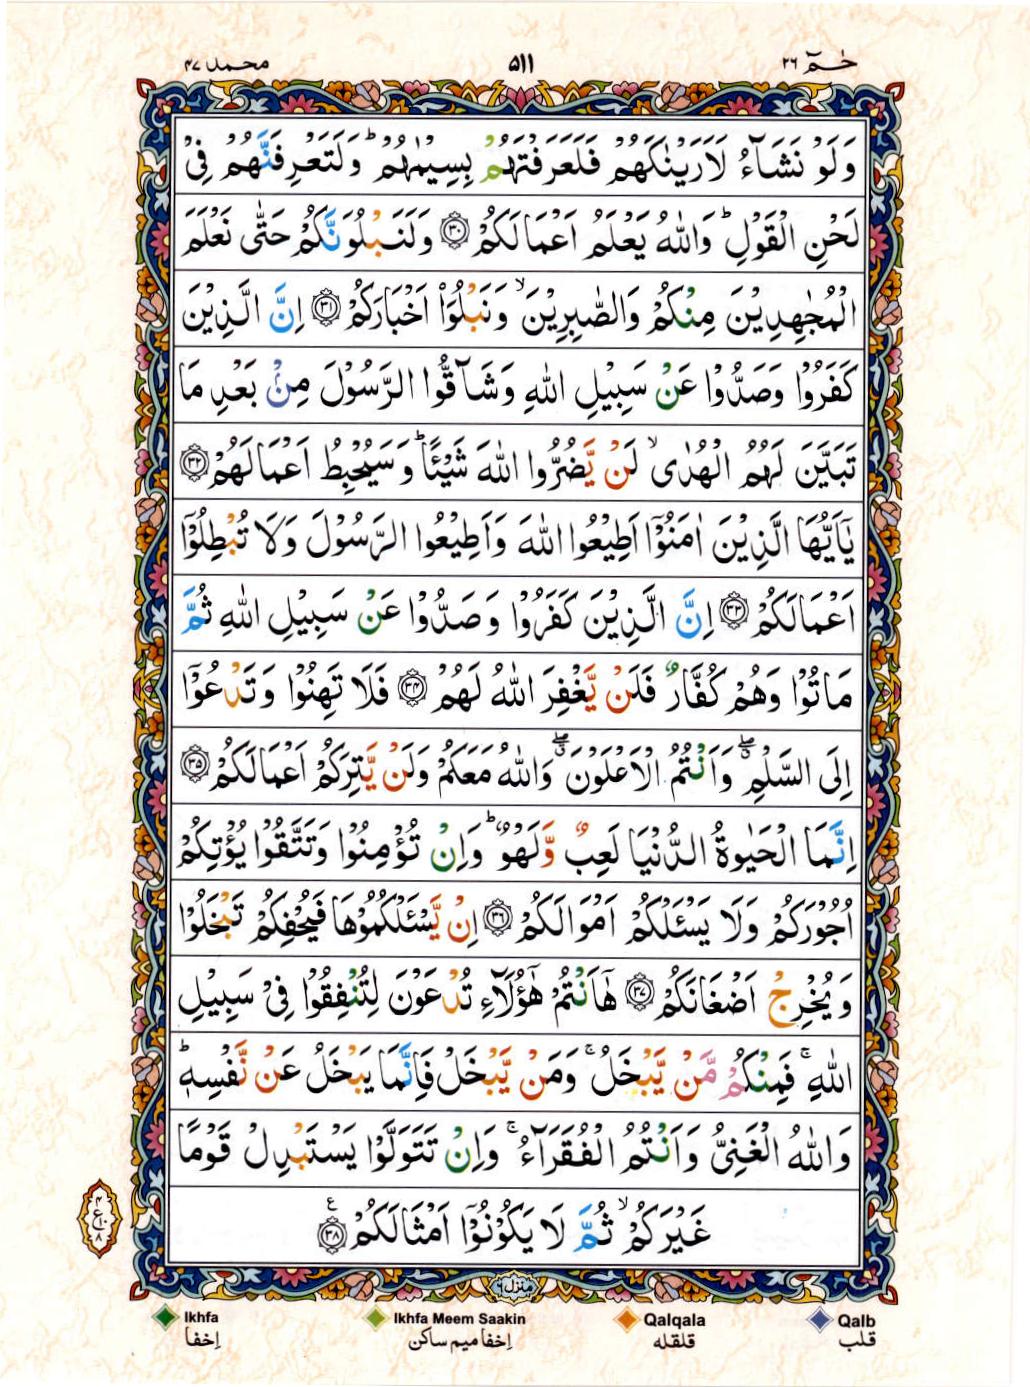 محمد ۴۷
۵۱۱
حٰمٓ ۲۶
وَلَوْ نَشَآءُ لَاَرَيْنٰكَهُمْ فَلَعَرَفْتَهُمْ بِسِيْمٰهُمْ ؕ وَلَتَعْرِفَنَّهُمْ فِىْ
لَحْنِ الْقَوْلِ ؕ وَاللّٰهُ يَعْلَمُ اَعْمَالَكُمْ ۝۳۰ وَلَنَبْلُوَنَّكُمْ حَتّٰى نَعْلَمَ
الْمُجٰهِدِيْنَ مِنْكُمْ وَالصّٰبِرِيْنَ ۙ وَنَبْلُوَا۟ اَخْبَارَكُمْ ۝۳۱ اِنَّ الَّذِيْنَ
كَفَرُوْا وَصَدُّوْا عَنْ سَبِيْلِ اللّٰهِ وَشَآقُّوا الرَّسُوْلَ مِنْۢ بَعْدِ مَا
تَبَيَّنَ لَهُمُ الْهُدٰى ۙ لَنْ يَّضُرُّوا اللّٰهَ شَيْـًٔا ؕ وَسَيُحْبِطُ اَعْمَالَهُمْ ۝۳۲
يٰۤاَيُّهَا الَّذِيْنَ اٰمَنُوْۤا اَطِيْعُوا اللّٰهَ وَاَطِيْعُوا الرَّسُوْلَ وَلَا تُبْطِلُوْۤا
اَعْمَالَكُمْ ۝۳۳ اِنَّ الَّذِيْنَ كَفَرُوْا وَصَدُّوْا عَنْ سَبِيْلِ اللّٰهِ ثُمَّ
مَاتُوْا وَهُمْ كُفَّارٌ فَلَنْ يَّغْفِرَ اللّٰهُ لَهُمْ ۝۳۴ فَلَا تَهِنُوْا وَتَدْعُوْۤا
اِلَى السَّلْمِ ۖۗ وَاَنْتُمُ الْاَعْلَوْنَ ۖۗ وَاللّٰهُ مَعَكُمْ وَلَنْ يَّتِرَكُمْ اَعْمَالَكُمْ ۝۳۵
اِنَّمَا الْحَيٰوةُ الدُّنْيَا لَعِبٌ وَّلَهْوٌ ؕ وَاِنْ تُؤْمِنُوْا وَتَتَّقُوْا يُؤْتِكُمْ
اُجُوْرَكُمْ وَلَا يَسْـَٔلْكُمْ اَمْوَالَكُمْ ۝۳۶ اِنْ يَّسْـَٔلْكُمُوْهَا فَيُحْفِكُمْ تَبْخَلُوْا
وَيُخْرِجْ اَضْغَانَكُمْ ۝۳۷ هٰۤاَنْتُمْ هٰٓؤُلَآءِ تُدْعَوْنَ لِتُنْفِقُوْا فِىْ سَبِيْلِ
اللّٰهِ ۚ فَمِنْكُمْ مَّنْ يَّبْخَلُ ۚ وَمَنْ يَّبْخَلْ فَاِنَّمَا يَبْخَلُ عَنْ نَّفْسِهٖ ؕ
وَاللّٰهُ الْغَنِىُّ وَاَنْتُمُ الْفُقَرَآءُ ۚ وَاِنْ تَتَوَلَّوْا يَسْتَبْدِلْ قَوْمًا
غَيْرَكُمْ ۙ ثُمَّ لَا يَكُوْنُوْۤا اَمْثَالَكُمْ ۝۳۸ ع
۴
ع ۱۰
۸
منزل ۶
Ikhfa
اِخفا
Ikhfa Meem Saakin
اِخفا میم ساکن
Qalqala
قلقله
Qalb
قلب